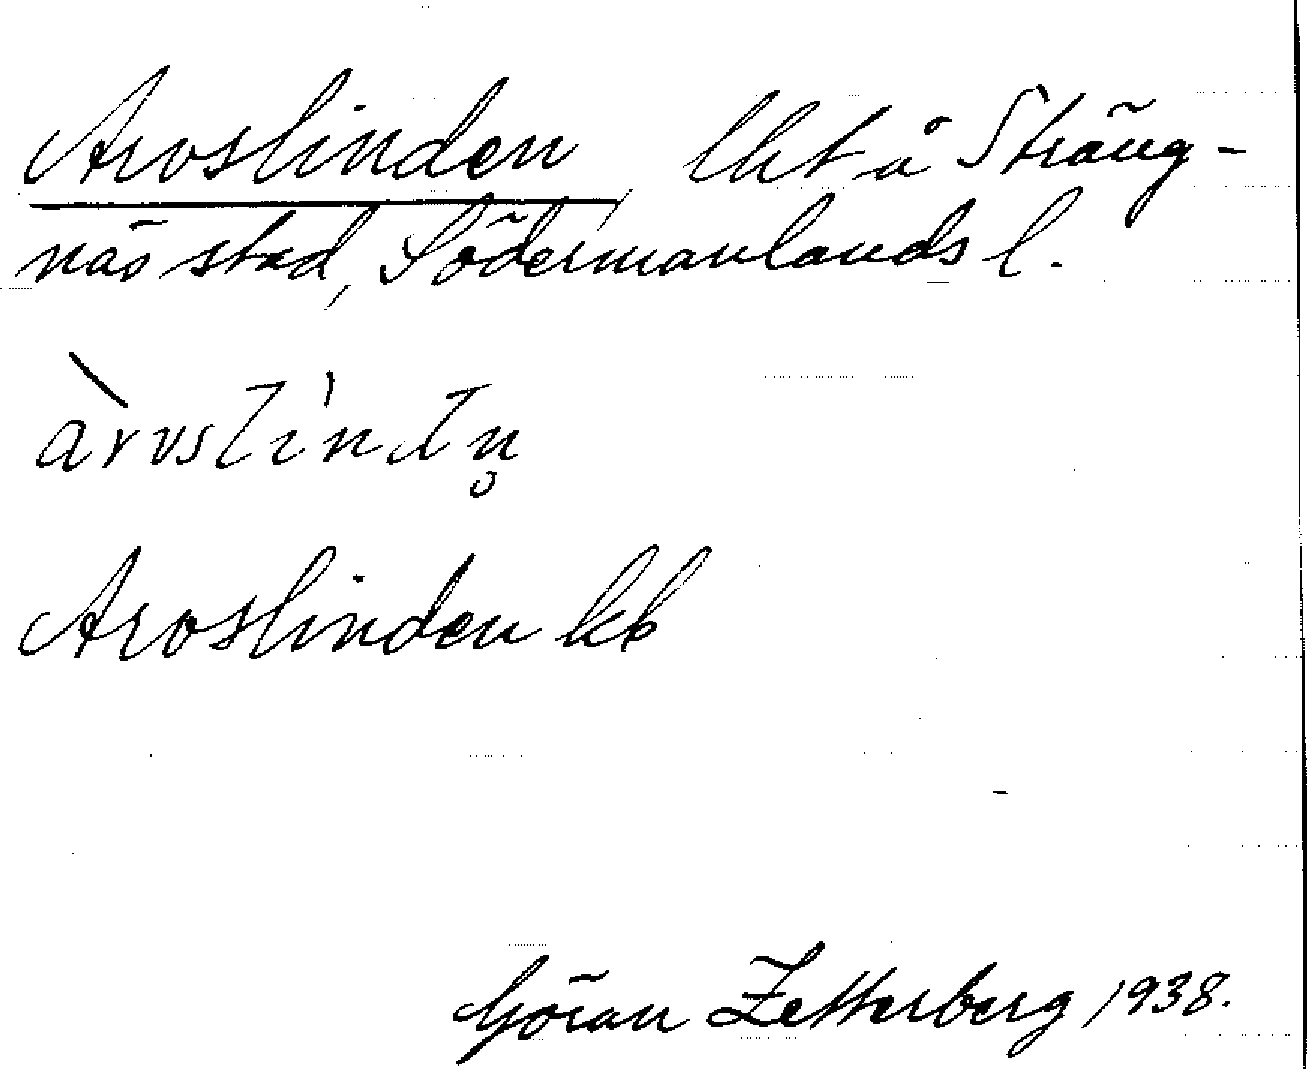 Aroslinden lht å Sträng-
näs stad, Södermanlands l.
àrωslìndn̥
Aroslinden kb
Göran Zetterberg 1938.